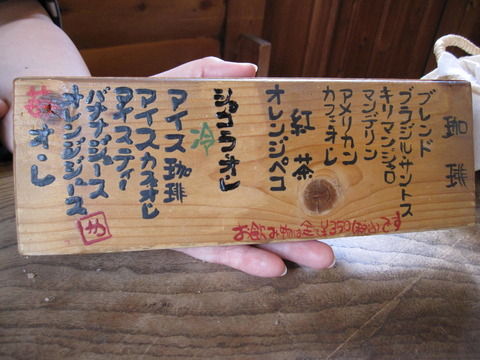 珈琲
ブレンド
ブラジルサントス
キリマンジャロ
マンデリン
アメリカン
カフェオレ
紅茶
オレンジペコ
ショコラオレ
冷
アイス珈琲
アイスカフェオレ
アイスティー
バナナジュース
オレンジジュース
オ・レ
お飲み物は全て¥350(税込)です